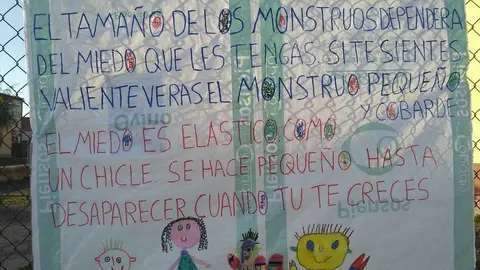 EL TAMAÑO DE LOS MONSTRUOS DEPENDERA
DEL MIEDO QUE LES TENGAS. SI TE SIENTES
VALIENTE VERAS EL MONSTRUO PEQUEÑO
Y COBARDE
EL MIEDO ES ELASTICO COMO
UN CHICLE. SE HACE PEQUEÑO HASTA
DESAPARECER CUANDO TU TE CRECES
Piensos